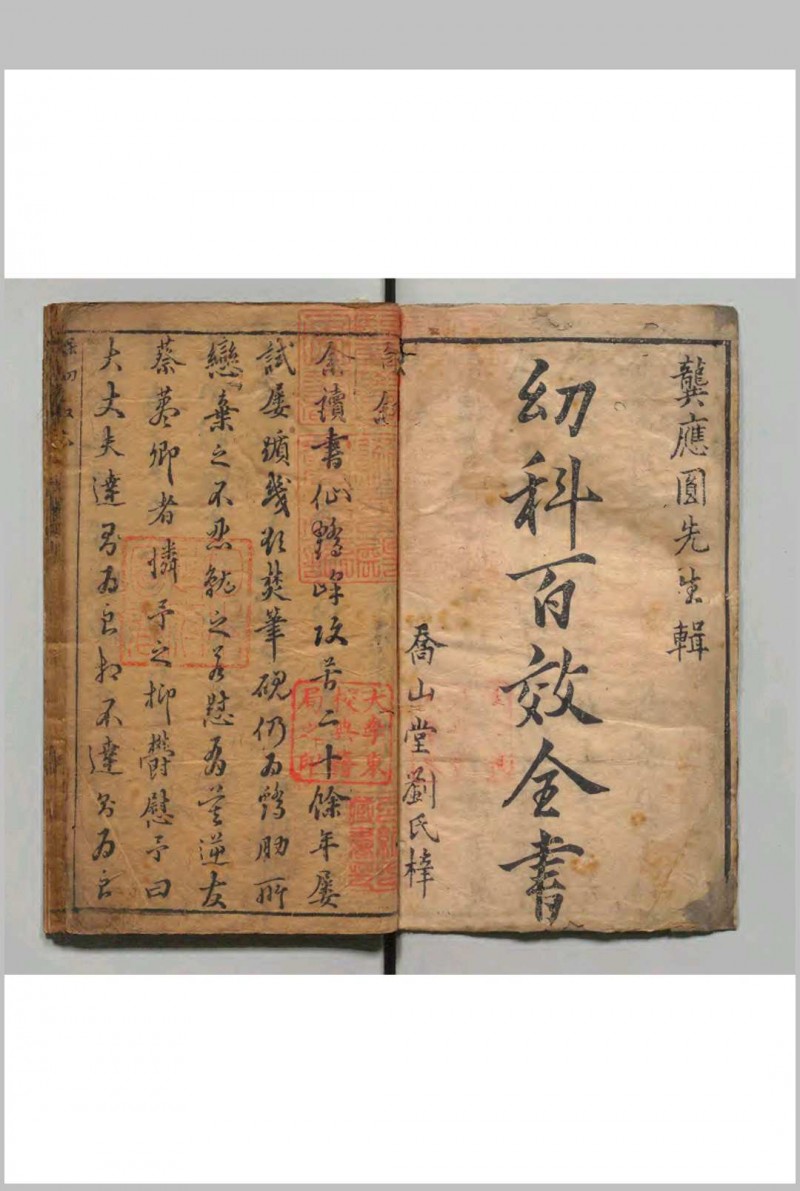 龔應圓先生輯
幼科百效全書
喬山堂劉氏梓
余讀書仙鶴峰攻苦二十餘年屢
試屢躓幾欲焚筆硯仍為鷄肋所
戀棄之不忍就之若慰為莫逆友
蔡蓋卿者憐予之抑欝慰予曰
大丈夫達則為良相不達則為良
大學東
校典籍
局之印